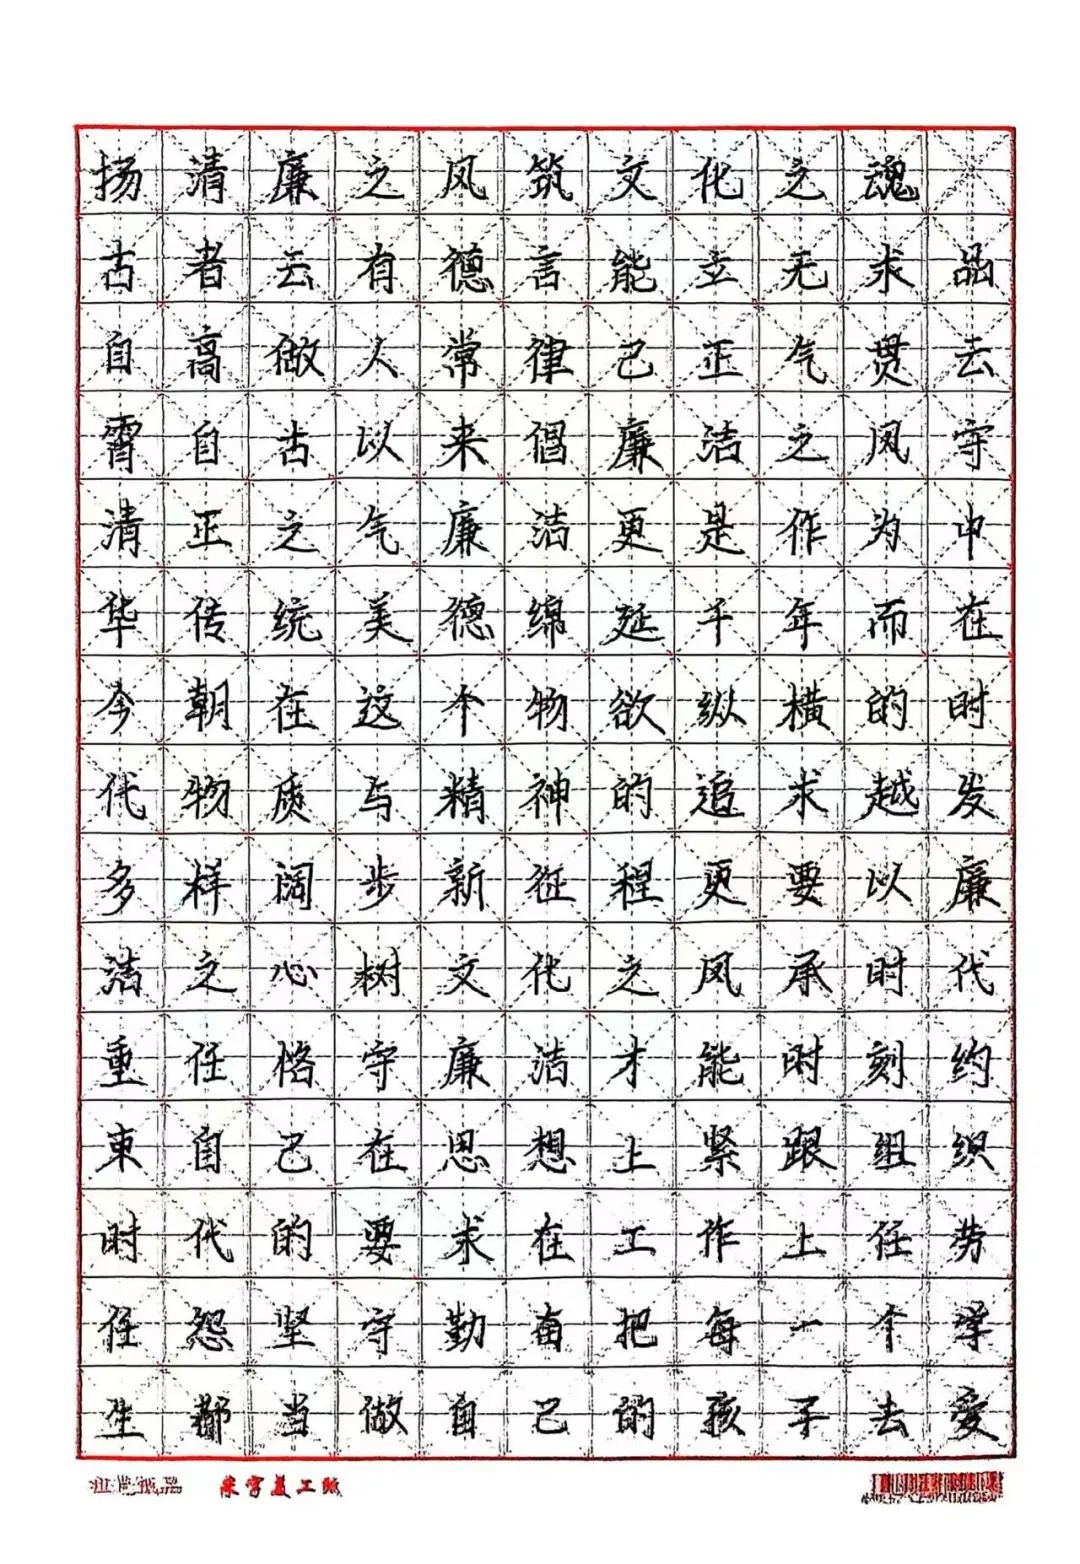 扬清廉之风筑文化之魂
古者云有德言能立无求品
自高做人常律己正气贯云
霄自古以来倡廉洁之风守
清正之气廉洁更是作为中
华传统美德绵延千年而在
今朝在这个物欲纵横的时
代物质与精神的追求越发
多样阔步新征程更要以廉
洁之心树文化之风承时代
重任恪守廉洁才能时刻约
束自己在思想上紧跟组织
时代的要求在工作上任劳
任怨坚守勤奋把每一个学
生都当做自己的孩子去爱